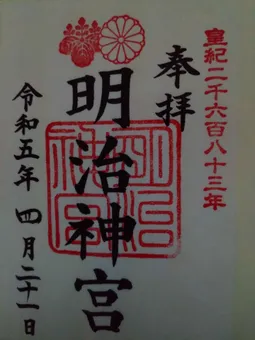 皇紀二千六百八十三年
奉拝
明治神宮
令和五年 四月二十一日
明治
神宮